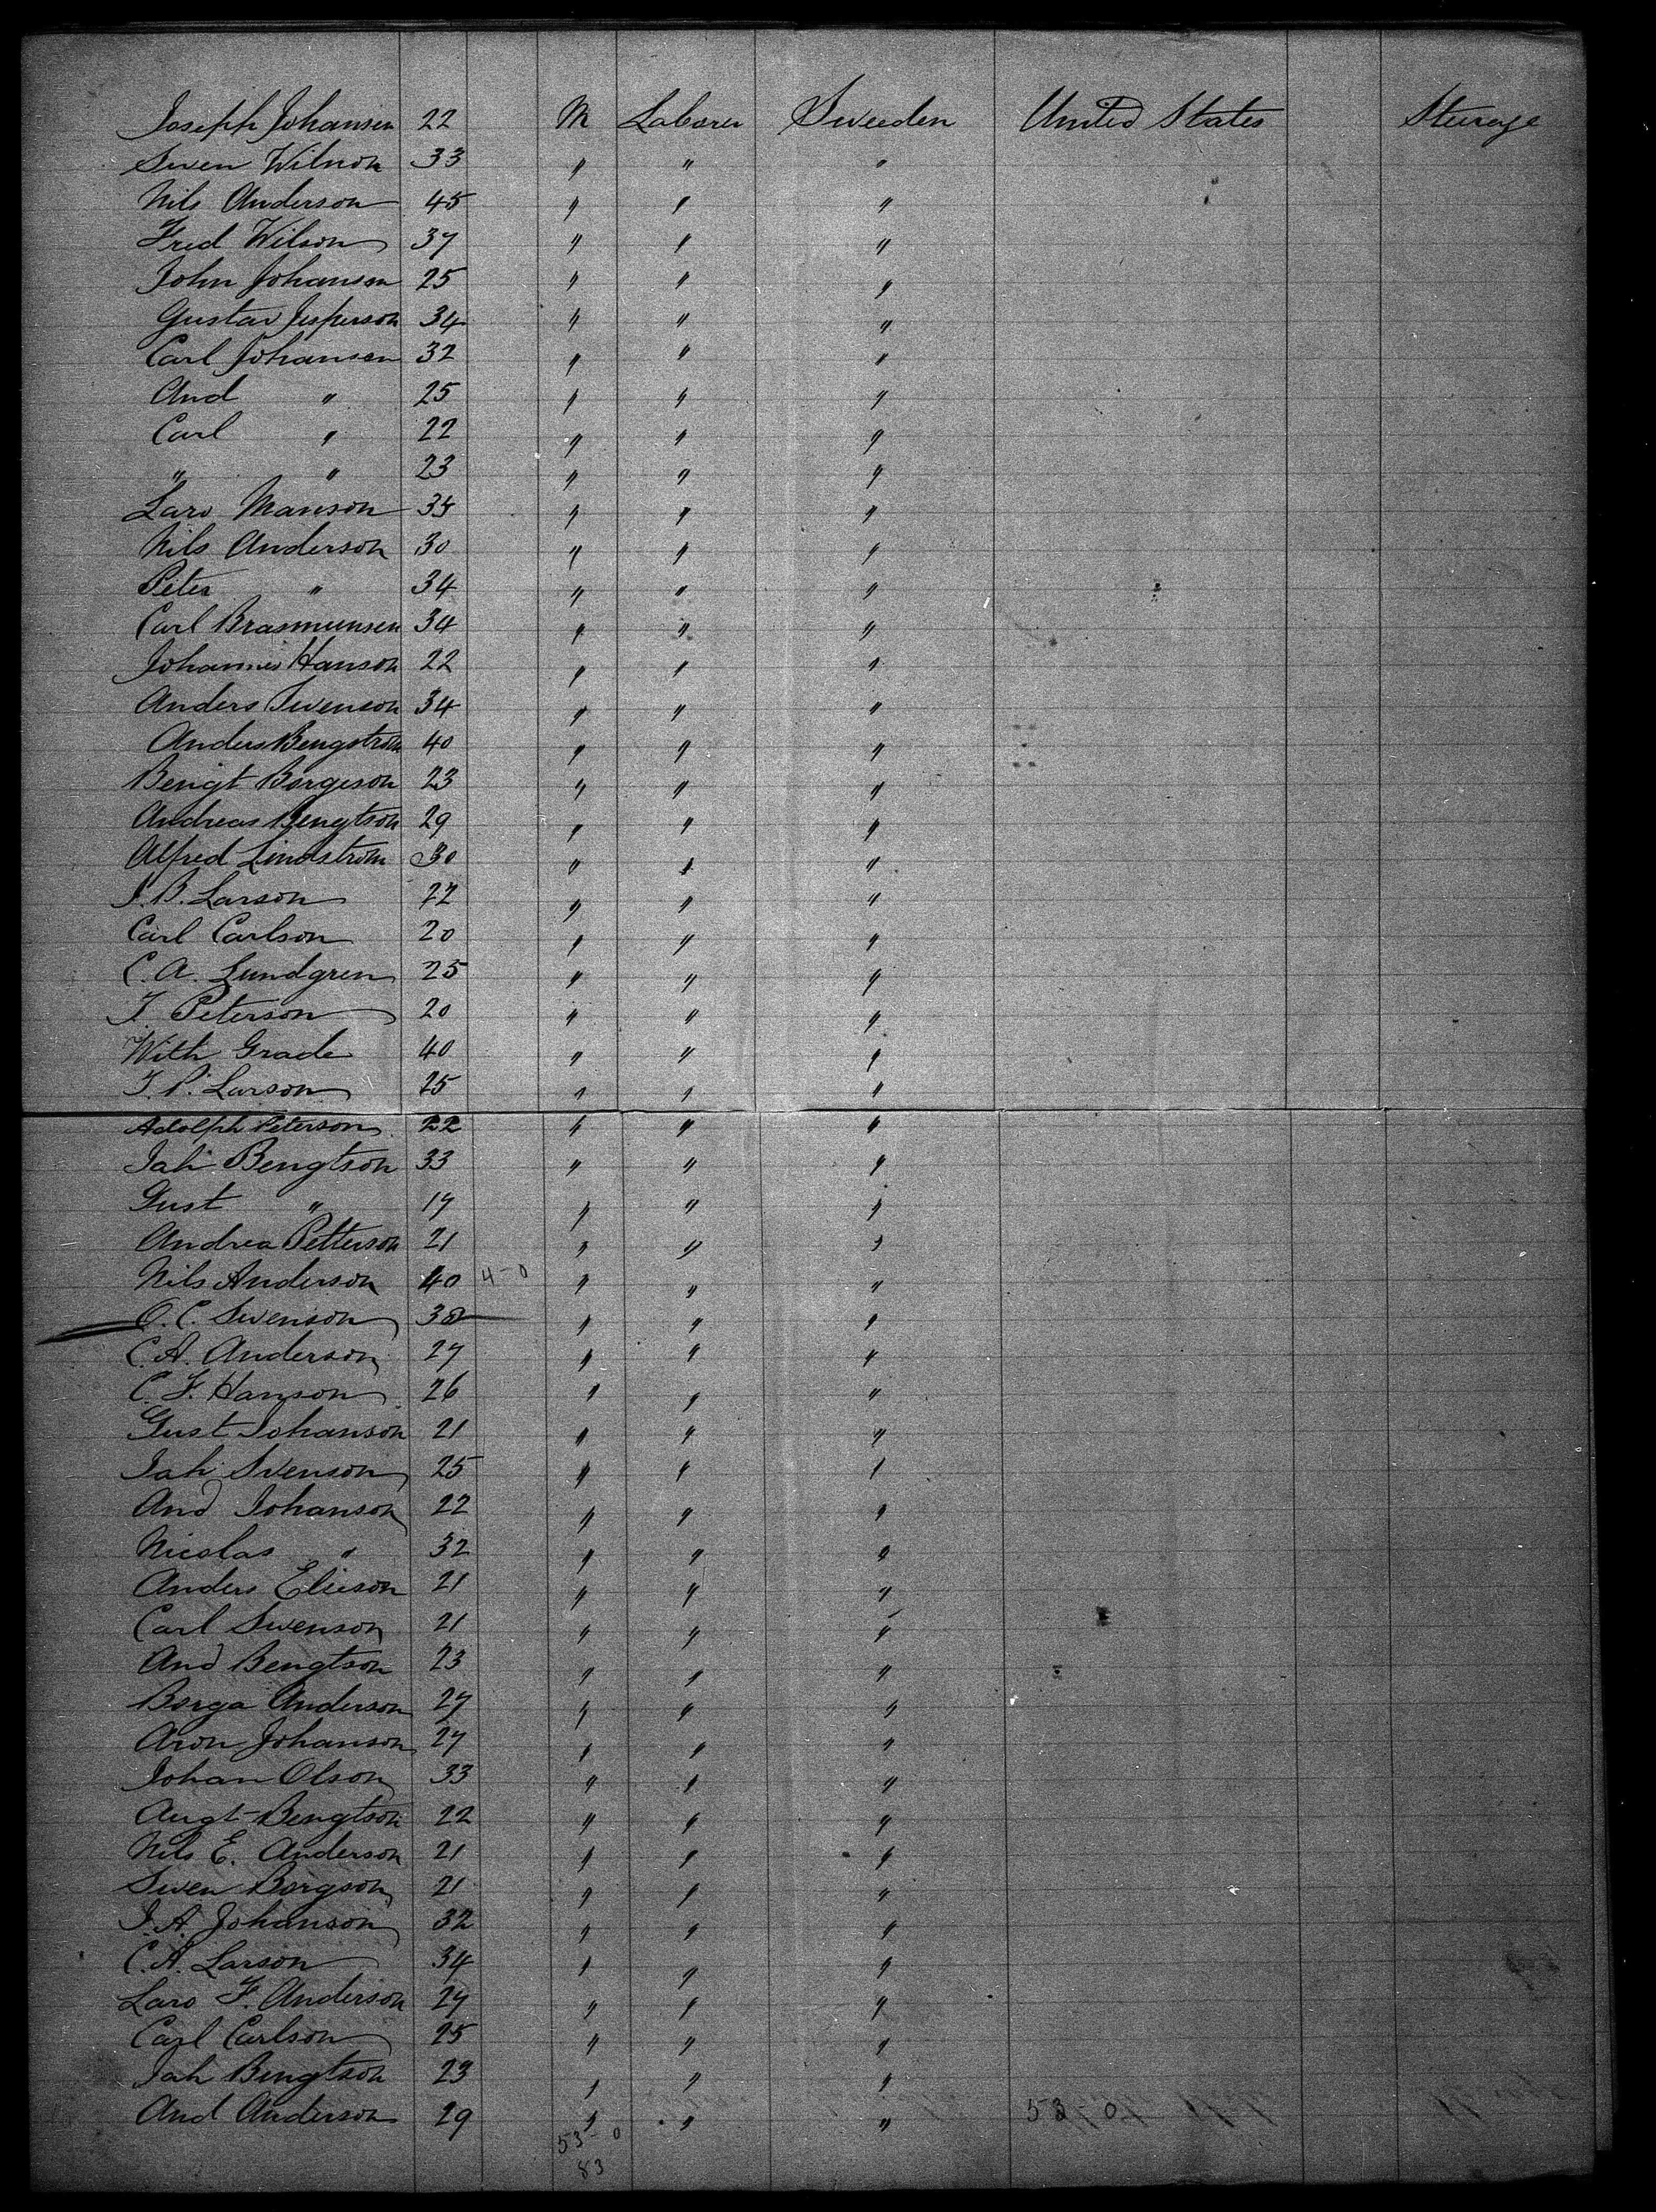 Joseph Johansen 22 M Laborer Sweeden United States Sturage
Swen Wilson 33 " " "
Nils Anderson 45 " " "
Fred Wilson 37 " " "
John Johansen 25 " " "
Gustav Jesperson 34 " " "
Carl Johansen 32 " " "
And " 25 " " "
Carl " 22 " " "
" " 23 " " "
Lars Manson 35 " " "
Nils Anderson 30 " " "
Peter " 34 " " "
Carl Brasmunsen 34 " " "
Johannes Hanson 22 " " "
Anders Swenson 34 " " "
Anders Bengstrom 40 " " "
Bengt Borgeson 23 " " "
Andreas Bengtson 29 " " "
Alfred Lindstrom 30 " " "
J. B. Larson 22 " " "
Carl Carlson 20 " " "
C. A. Lundgren 25 " " "
J. Peterson 20 " " "
With Grade 40 " " "
J. P. Larson 25 " " "
Adolph Peterson 22 " " "
Joh Bengtson 33 " " "
Gust " 17 " " "
Andrea Petterson 21 " " "
Nils Anderson 40 4-0 " " "
O. C. Swenson 38 " " "
C. A. Anderson 27 " " "
C. F. Hanson 26 " " "
Gust Johanson 21 " " "
Joh Svenson 25 " " "
And Johanson 22 " " "
Nicolas " 32 " " "
Anders Elieson 21 " " "
Carl Swenson 21 " " "
And Bengtson 23 " " "
Borga Anderson 27 " " "
Aron Johanson 27 " " "
Johan Olson 33 " " "
Augt Bengtson 22 " " "
Nils E. Anderson 21 " " "
Swen Borgson 21 " " "
J. A. Johanson 32 " " "
C. A. Larson 34 " " "
Lars F. Anderson 27 " " "
Carl Carlson 25 " " "
Joh Bengtson 23 " " "
And Anderson 29 " " "
53-0
83